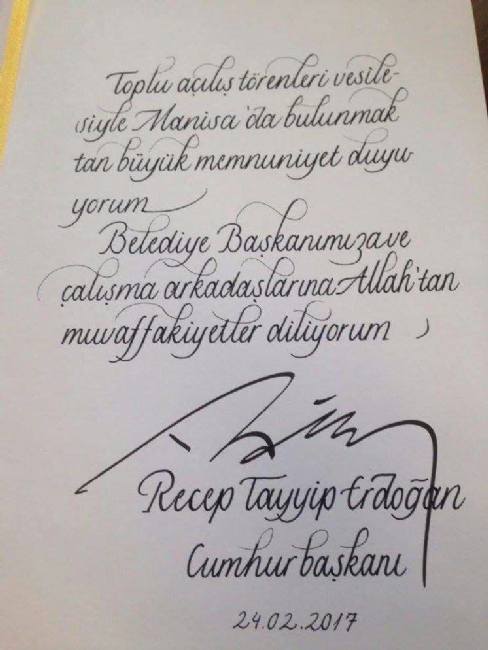 Toplu açılış törenleri vesile-
siyle Manisa'da bulunmak
tan büyük memnuniyet duyu-
yorum
Belediye Başkanımıza ve
çalışma arkadaşlarına Allah'tan
muvaffakiyetler diliyorum
Recep Tayyip Erdoğan
Cumhurbaşkanı
24.02.2017